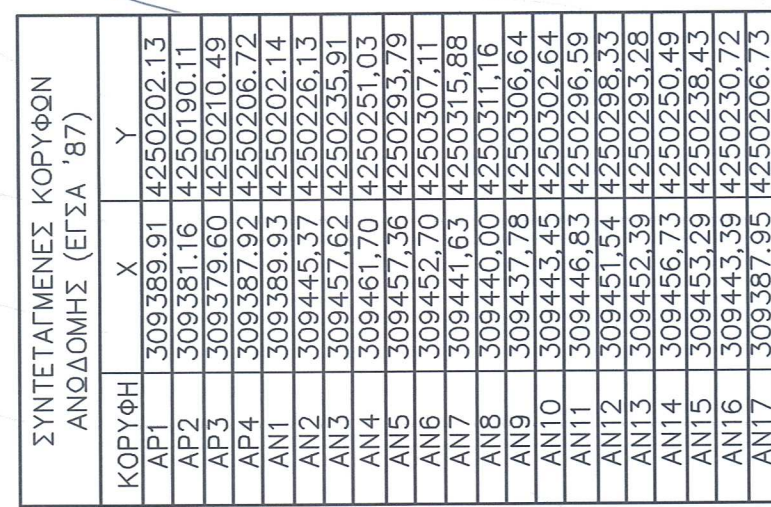 ΣΥΝΤΕΤΑΓΜΕΝΕΣ ΚΟΡΥΦΩΝ
ΑΝΩΔΟΜΗΣ (ΕΓΣΑ '87)
ΚΟΡΥΦΗ X Y
AP1 309389.91 4250202.13
AP2 309381.16 4250190.11
AP3 309379.60 4250210.49
AP4 309387.92 4250206.72
AN1 309389.93 4250202.14
AN2 309445,37 4250226,13
AN3 309457,62 4250235,91
AN4 309461,70 4250251,03
AN5 309457,36 4250293,79
AN6 309452,70 4250307,11
AN7 309441,63 4250315,88
AN8 309440,00 4250311,16
AN9 309437,78 4250306,64
AN10 309443,45 4250302,64
AN11 309446,83 4250296,59
AN12 309451,54 4250298,33
AN13 309452,39 4250293,28
AN14 309456,73 4250250,49
AN15 309453,29 4250238,43
AN16 309443,39 4250230,72
AN17 309387.95 4250206.73